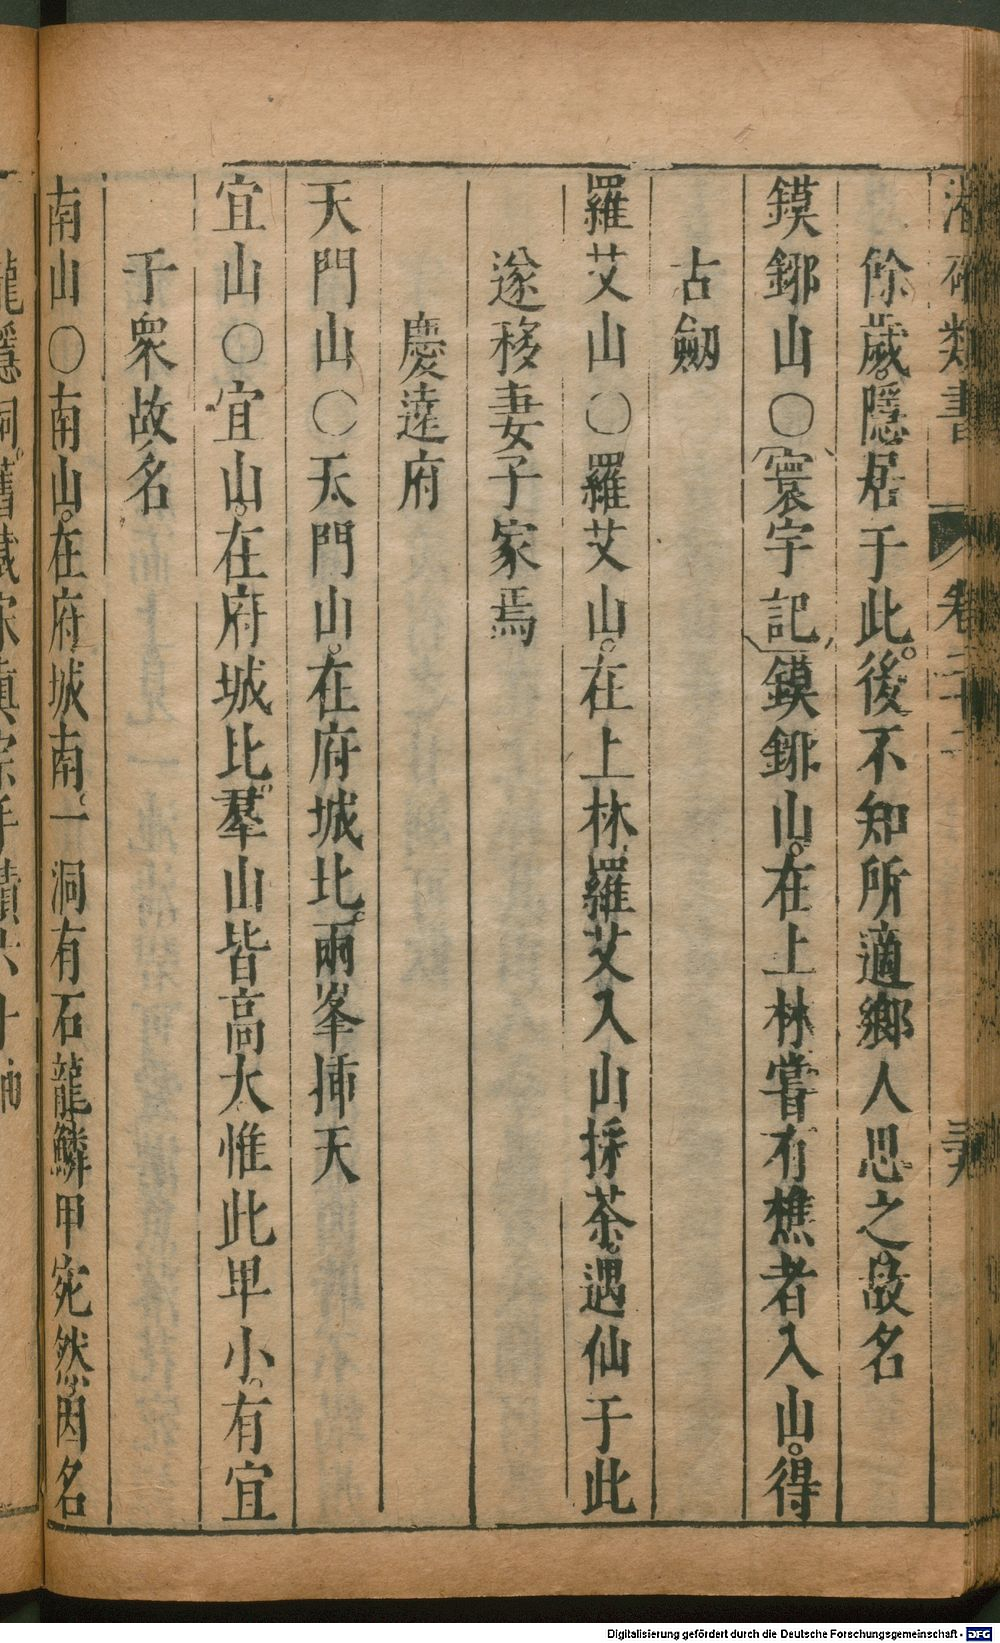 類書 卷二十二
餘歲隱居于此。後不知所適鄉人思之。故名
鏌鋣山〇寰宇記鏌鋣山。在上林嘗有樵者入山。得
古劒
羅艾山〇羅艾山。在上林羅艾入山採茶。遇仙于此
遂移妻子家焉
慶遠府
天門山〇天門山。在府城北。兩峯揷天
宜山〇宜山。在府城北。羣山皆高大惟此卑小。有宜
于衆故名
南山〇南山。在府城南。一洞有石龍鱗甲宛然。因名
龍隱洞。舊藏宋眞宗手
Digitalisierung gefördert durch die Deutsche Forschungsgemeinschaft - DFG